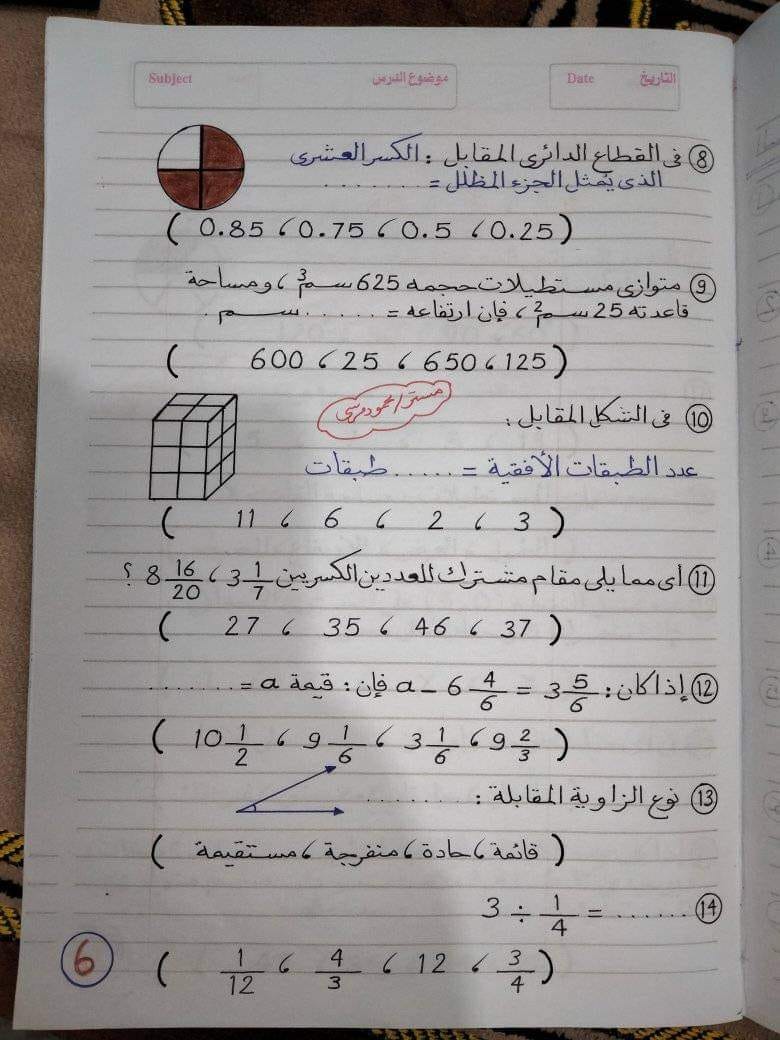 التاريخ Date
موضوع الدرس Subject
⑧ فى القطاع الدائرى المقابل : الكسر العشرى
الذى يمثل الجزء المظلل = ........
( 0.25 ، 0.5 ، 0.75 ، 0.85 )
⑨ متوازى مستطيلات حجمه 625 سم³ ، ومساحة
قاعدته 25 سم² ، فإن ارتفاعه = ...... سم .
( 125 ، 650 ، 25 ، 600 )
⑩ فى الشكل المقابل :
مستر/محمود مرسى
عدد الطبقات الأفقية = ...... طبقات
( 3 ، 2 ، 6 ، 11 )
⑪ أى مما يلى مقام مشترك للعددين الكسريين 3 1/7 ، 8 16/20 ؟
( 37 ، 46 ، 35 ، 27 )
⑫ إذا كان : a - 6 4/6 = 3 5/6 فإن : قيمة a = ........
( 9 2/3 ، 3 1/6 ، 9 1/6 ، 10 1/2 )
⑬ نوع الزاوية المقابلة : ........
( قائمة ، حادة ، منفرجة ، مستقيمة )
⑭ 3 ÷ 1/4 = .......
( 3/4 ، 12 ، 4/3 ، 1/12 )
6